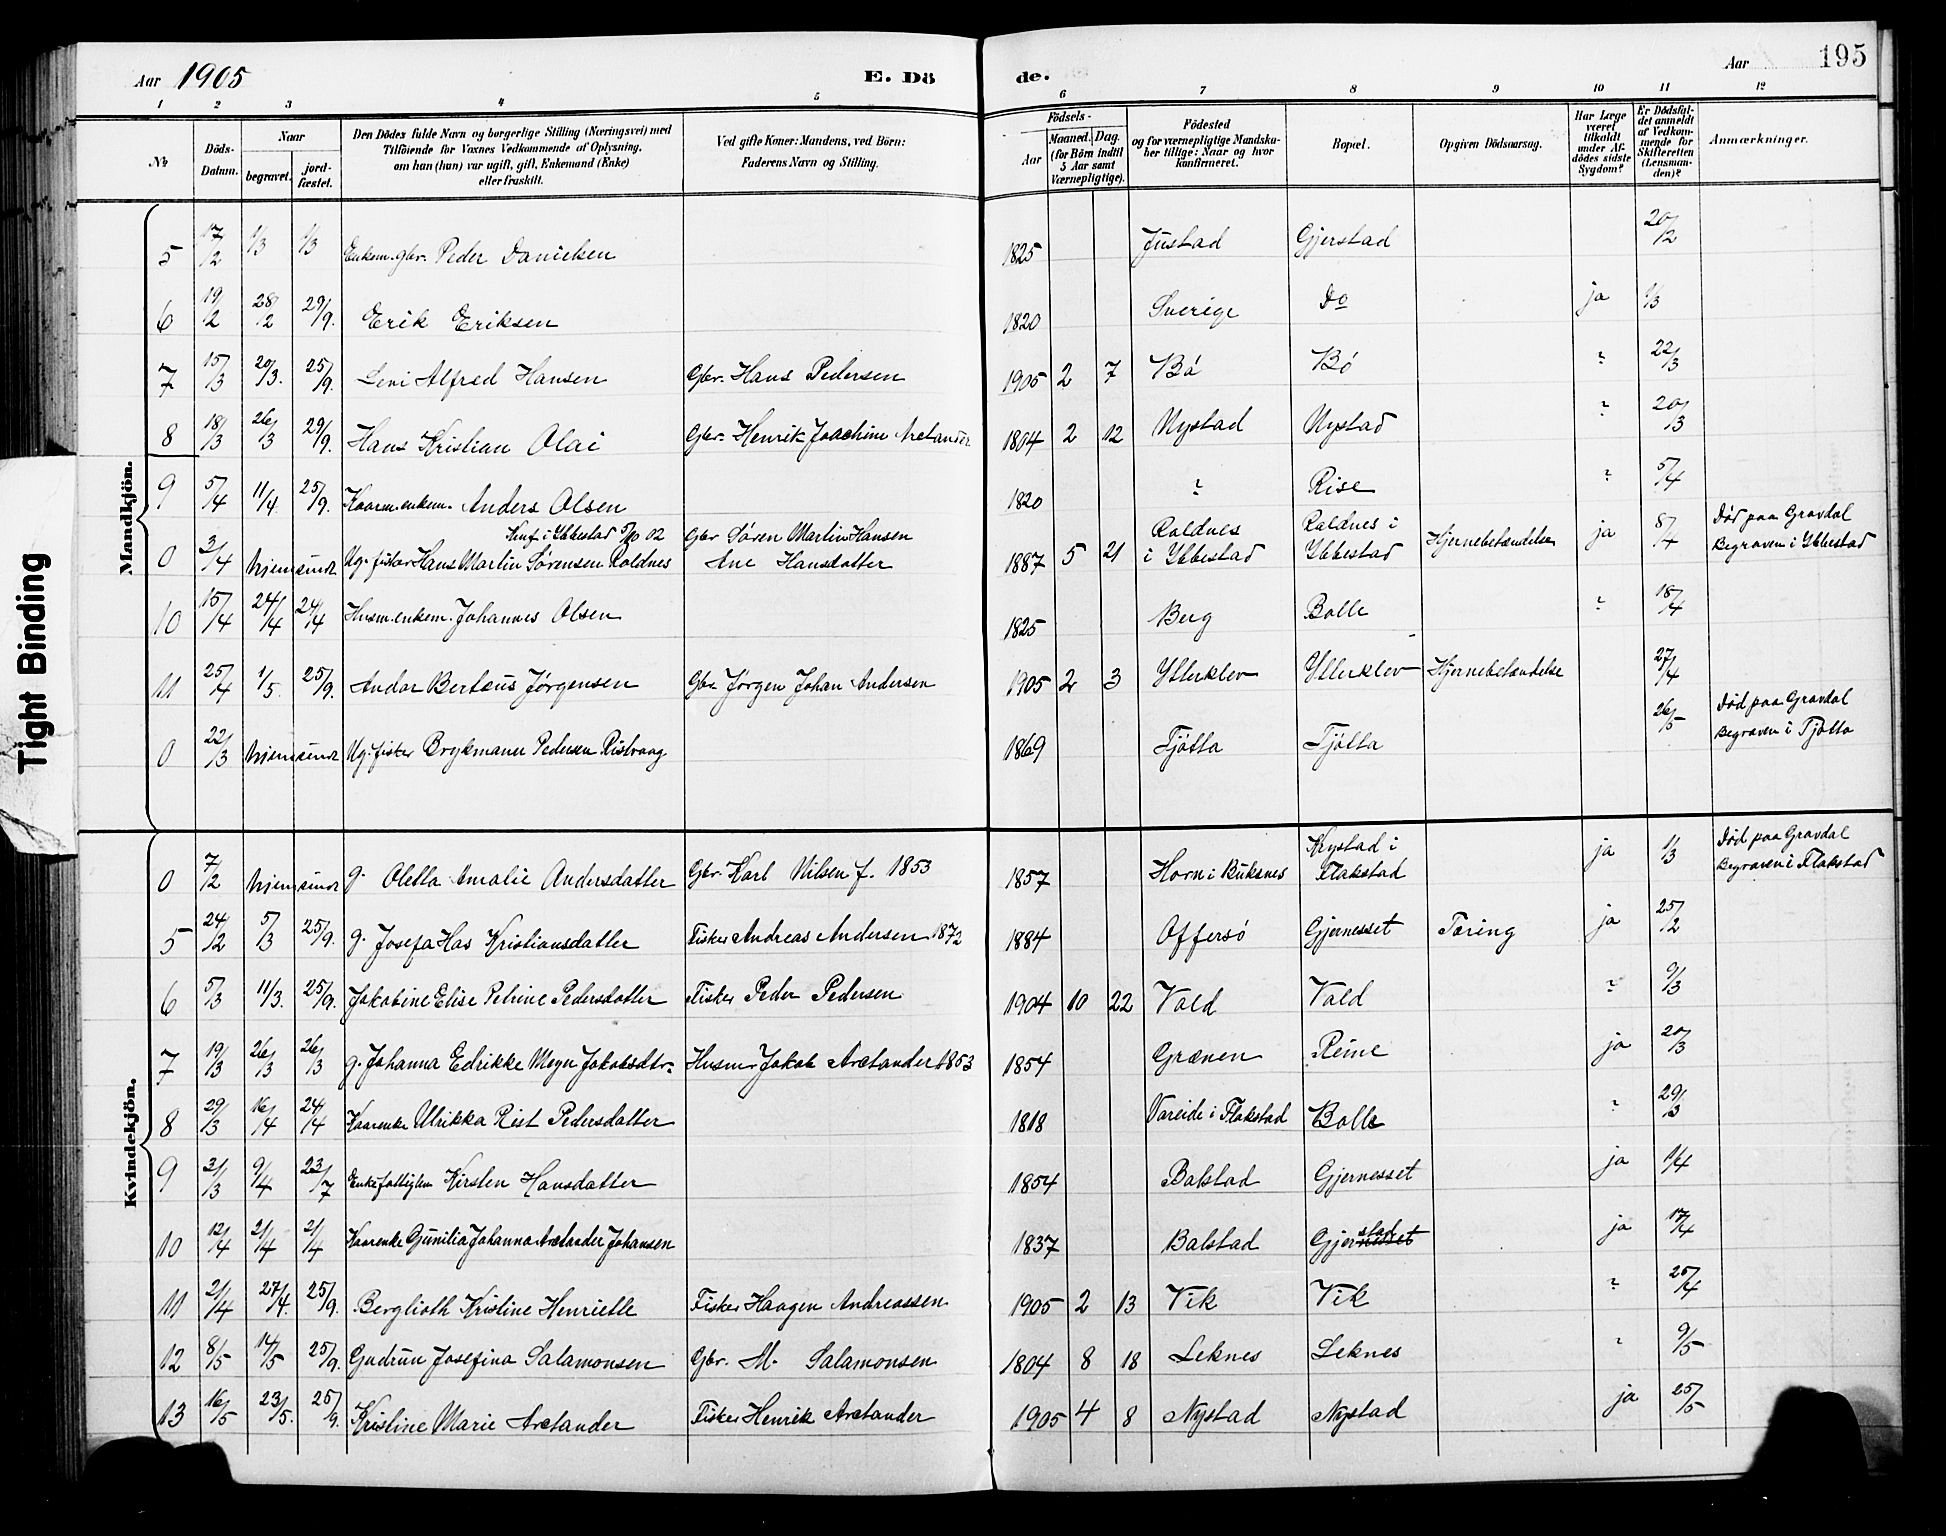 Aar 1905 E. Dö de. Aar 195
1 2 3 4 5 6 7 8 9 10 11 12
№ Döds-Datum. Naar begravet. jordfæstet. Den Dödes fulde Navn og borgerlige Stilling (Næringsvei) med Tilföiende for Voxnes Vedkommende af Oplysning, om han (hun) var ugift, gift, Enkemand (Enke) eller fraskilt. Ved gifte Koner: Mandens, ved Börn: Faderens Navn og Stilling. Födsels- Aar Maaned. Dag. (for Börn indtil 5 Aar samt Værnepligtige). Födested og for værnepligtige Mandskaber tillige: Naar og hvor konfirmeret. Bopæl. Opgiven Dödsaarsag. Har Læge været tilkaldt under Afdödes sidste Sygdom? Er Dödsfaldet anmeldt af Vedkommende for Skifteretten (Lensmanden)? Anmærkninger.
Mandkjön.
5 17/2 1/3 1/3 Enkem. gbr. Peder Danielsen 1825 Justad Gjerstad 20/2
6 19/2 28/2 29/9. Erik Eriksen 1820 Sverige Do ja 1/3
7 15/3 20/3. 25/9. Levi Alfred Hansen Gbr. Hans Pedersen 1905 2 7 Bö Bö ? 22/3
8 18/3 26/3 29/9. Hans Kristian Olai Gbr. Henrik Joachim Arctander 1804 2 12 Nystad Nystad ? 20/3
9 5/4 11/4. 25/9. Kaarm. enkem. Anders Olsen 1820 ? Rise ? 5/4
Konf. i Ybbestad 02 Gbr Søren Martin Hansen Roldnes Roldnes i Død paa Gravdal
0 3/4 hjemsendt Ug. fisker Hans Martin Sørensen Roldnes Ane Hansdatter 1887 5 21 i Ybbestad Ybbestad Hjernebetændelse ja 8/4 Begraven i Ybbestad
10 15/4 24/4 24/4 Husm. enkem. Johannes Olsen 1825 Berg Bolle ? 18/4
11 25/4 1/5. 25/9. Andor Berteus Jørgensen Gbr Jørgen Johan Andersen 1905 2 3 Ytterklev Ytterklev Hjernebetændelse 27/4
0 22/3 hjemsendt Ug. fisker Brykmann Pedersen Ristvaag 1869 Tjøtta Tjøtta 26/5 Død paa Gravdal
Begraven i Tjøtta
Kvindekjön.
0 7/2 hjemsendt g. Oletta Amalie Andersdatter Gbr. Karl Nilsen f. 1853 1857 Horn i Buksnes Krystad i Flakstad ja 1/3 Død paa Gravdal
Begraven i Flakstad
5 24/2 5/3 25/9. g. Josefa Has Kristiansdatter Fisker Andreas Andersen 1872 1884 Offersö Gjernesset Tæring ja 25/2
6 5/3 11/3. 25/9. Jakobine Elise Petrine Pedersdatter Fisker Peder Pedersen 1904 10 22 Vold Vold ? 9/3
7 19/3 26/3 26/3 g. Johanna Edrikke Meyer Jakobsdtr. Husm. Jakob Arctander 1853 1854 Grænen Reine ja 20/3
8 29/3 16/4 24/4 Kaarenke Ulrikka Rist Pedersdatter 1818 Vareide i Flakstad Bolle ? 29/3
9 31/3 9/4 23/7 Enke fattiglem Kirsten Hansdatter 1854 Balstad Gjernesset ja 1/4
10 12/4 21/4 21/4 Kaarenke Gunilia Johanna Arctander Johansen 1837 Balstad Gjerstad ja 17/4
11 21/4 27/4. 25/9. Berglioth Kristine Henriette Fisker Haagen Andreassen 1905 2 13 Vik Vik ? 25/4
12 8/5 14/5 25/9. Gudrun Josefina Salamonsen Gbr. M. Salamonsen 1804 8 18 Leknes Leknes ? 9/5
13 16/5 23/5. 25/9. Kristine Marie Arctander Fisker Henrik Arctander 1905 4 8 Nystad Nystad ja 25/5
Tight Binding